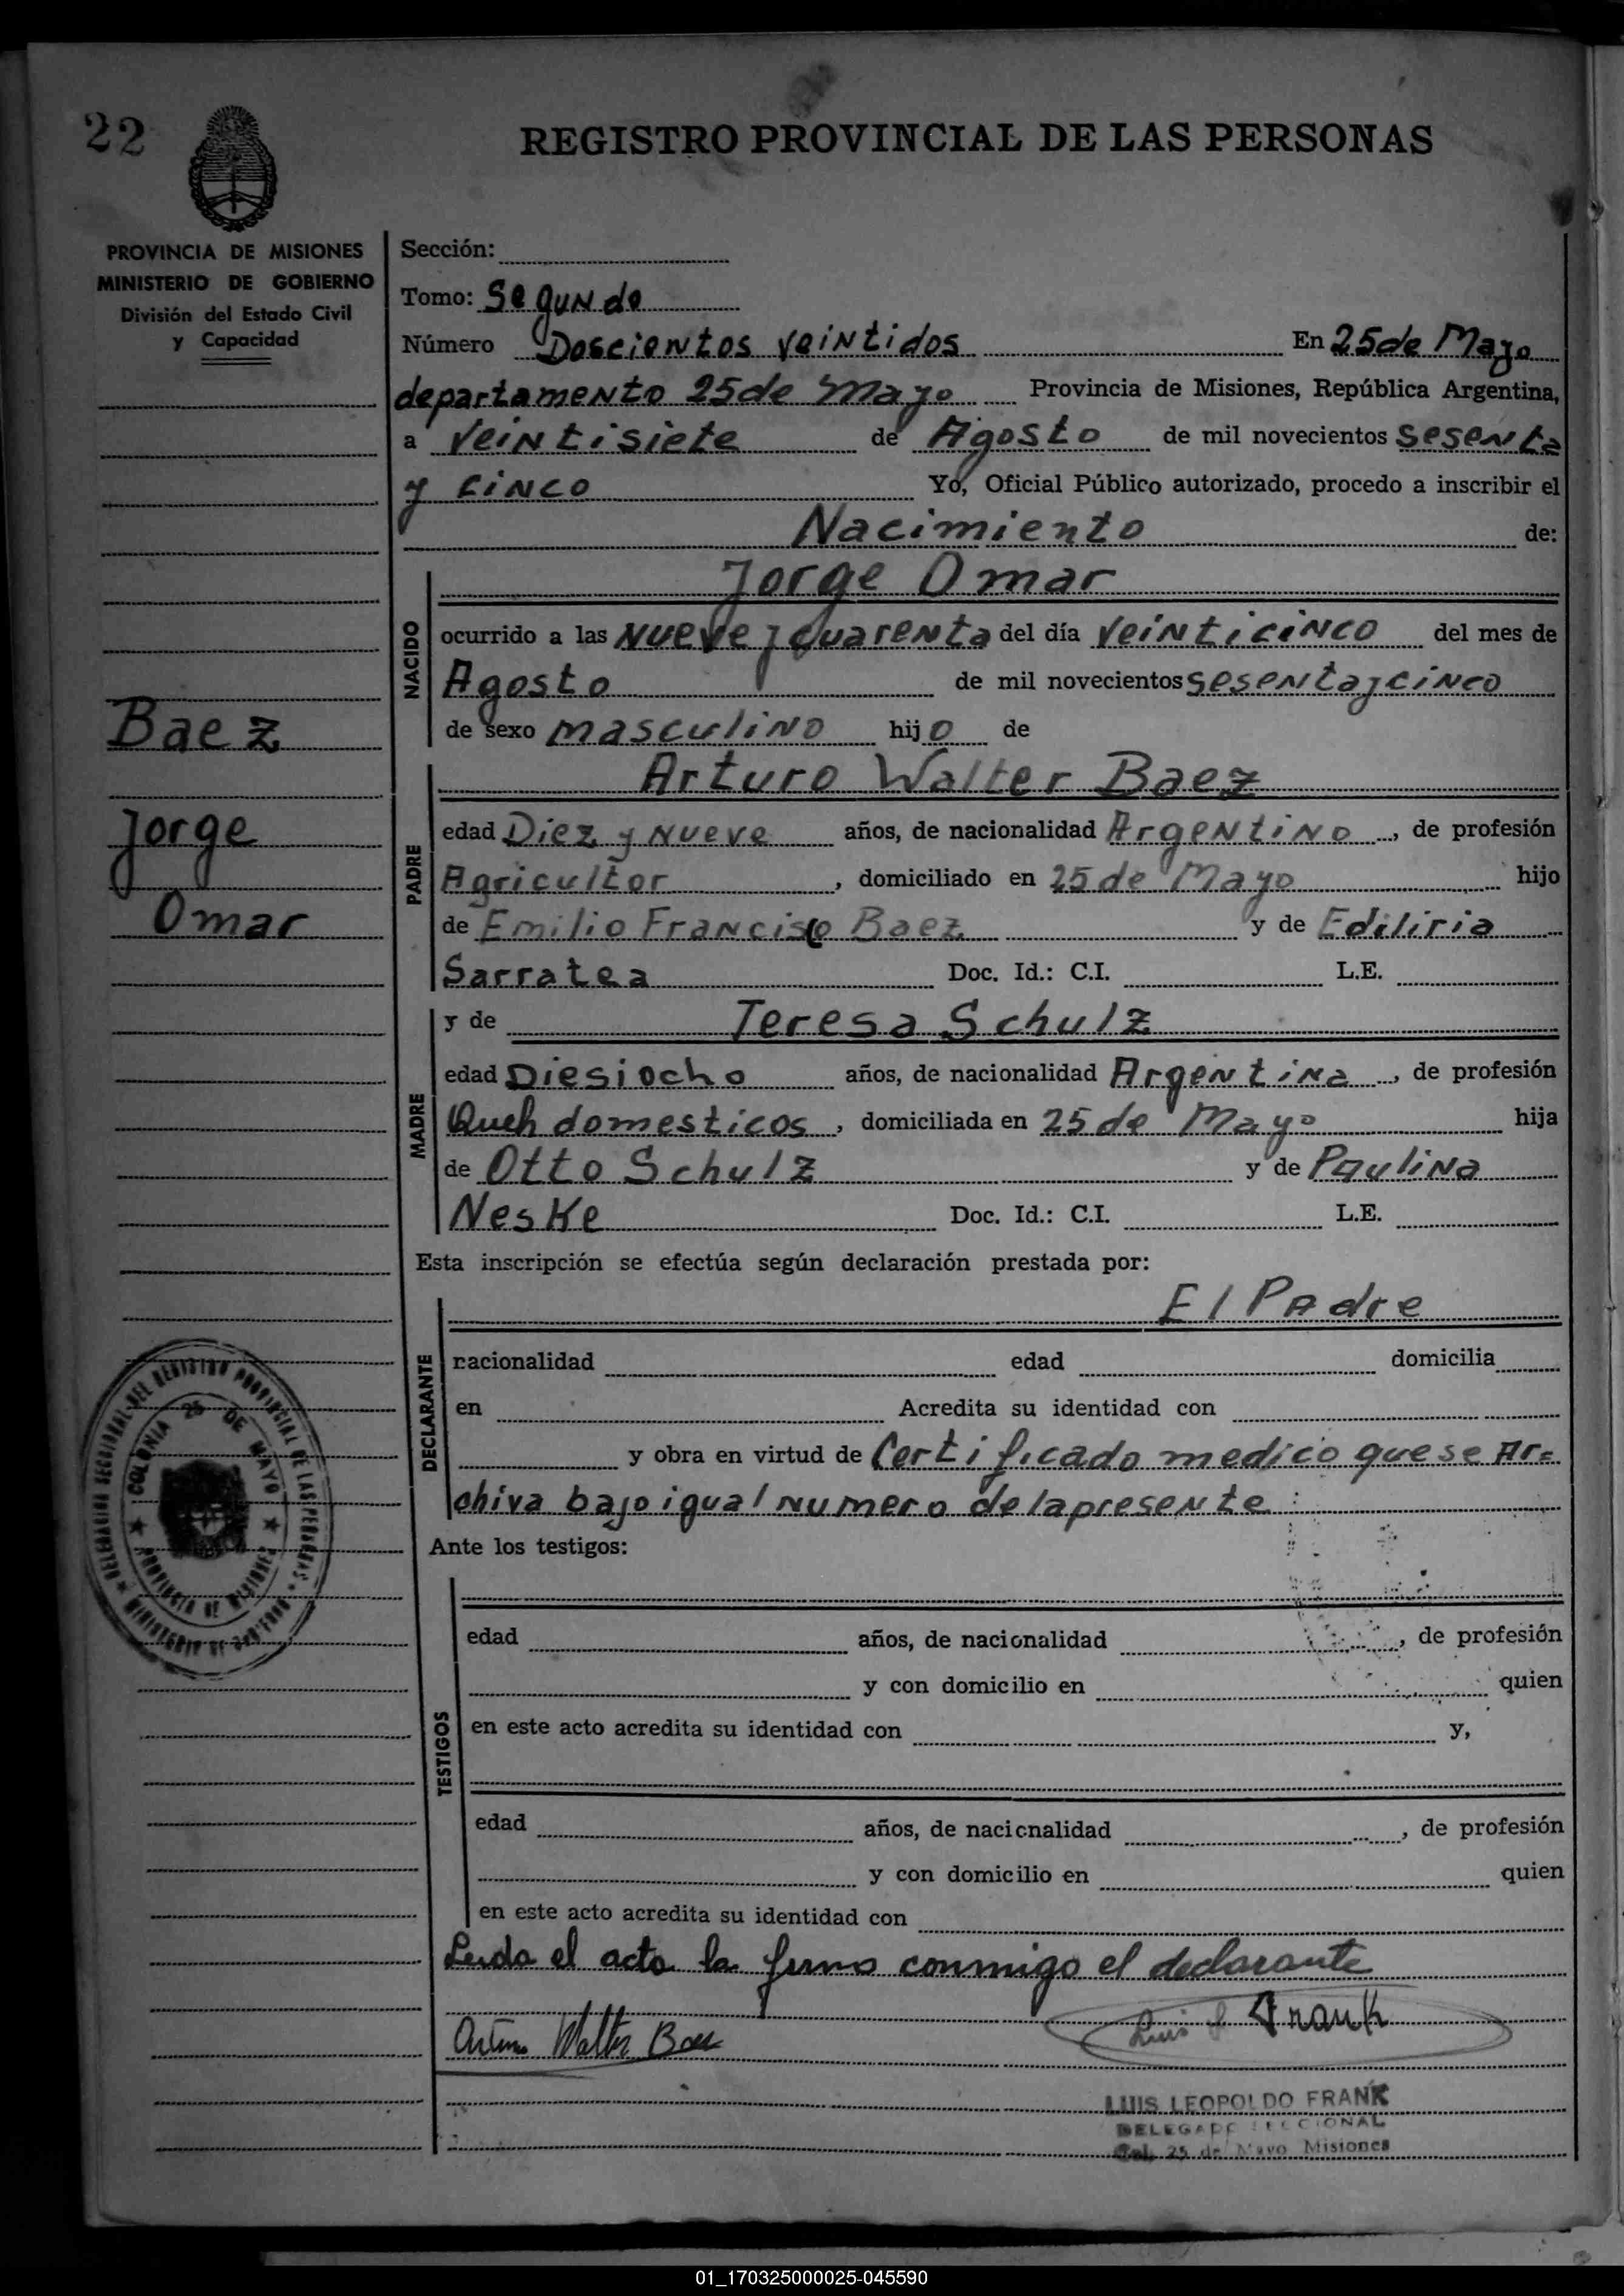 22
REGISTRO PROVINCIAL DE LAS PERSONAS
PROVINCIA DE MISIONES
MINISTERIO DE GOBIERNO
División del Estado Civil
y Capacidad
Baez
Jorge
Omar
DELEGACION SECCIONAL DEL REGISTRO PROVINCIAL DE LAS PERSONAS
MINISTERIO DE GOBIERNO
COLONIA 25 DE MAYO
PROVINCIA DE MISIONES
Sección:
Tomo: Segundo
Número Doscientos veintidos En 25 de Mayo
departamento 25 de Mayo Provincia de Misiones, República Argentina,
a veintisiete de Agosto de mil novecientos sesenta
y cinco Yo, Oficial Público autorizado, procedo a inscribir el
Nacimiento de:
NACIDO
Jorge Omar
ocurrido a las nueve y cuarenta del día veinticinco del mes de
Agosto de mil novecientos sesenta y cinco
de sexo masculino hijo de
PADRE
Arturo Walter Baez
edad Diez y nueve años, de nacionalidad Argentino, de profesión
Agricultor, domiciliado en 25 de Mayo hijo
de Emilio Francisco Baez y de Ediliria
Sarratea Doc. Id.: C.I. L.E.
MADRE
y de Teresa Schulz
edad Diesiocho años, de nacionalidad Argentina, de profesión
Queh domesticos, domiciliada en 25 de Mayo hija
de Otto Schulz y de Paulina
Neske Doc. Id.: C.I. L.E.
Esta inscripción se efectúa según declaración prestada por:
DECLARANTE
El Padre
nacionalidad edad domicilia
en Acredita su identidad con
y obra en virtud de Certificado medico que se Ar=
chiva bajo igual numero de la presente:
Ante los testigos:
TESTIGOS
edad años, de nacionalidad , de profesión
y con domicilio en quien
en este acto acredita su identidad con y,
edad años, de nacionalidad , de profesión
y con domicilio en quien
en este acto acredita su identidad con
Leida el acta la firma conmigo el declarante
Arturo Walter Baez Luis L Frank
LUIS LEOPOLDO FRANK
DELEGADO SECCIONAL
Col. 25 de Mayo Misiones
01_170325000025-045590